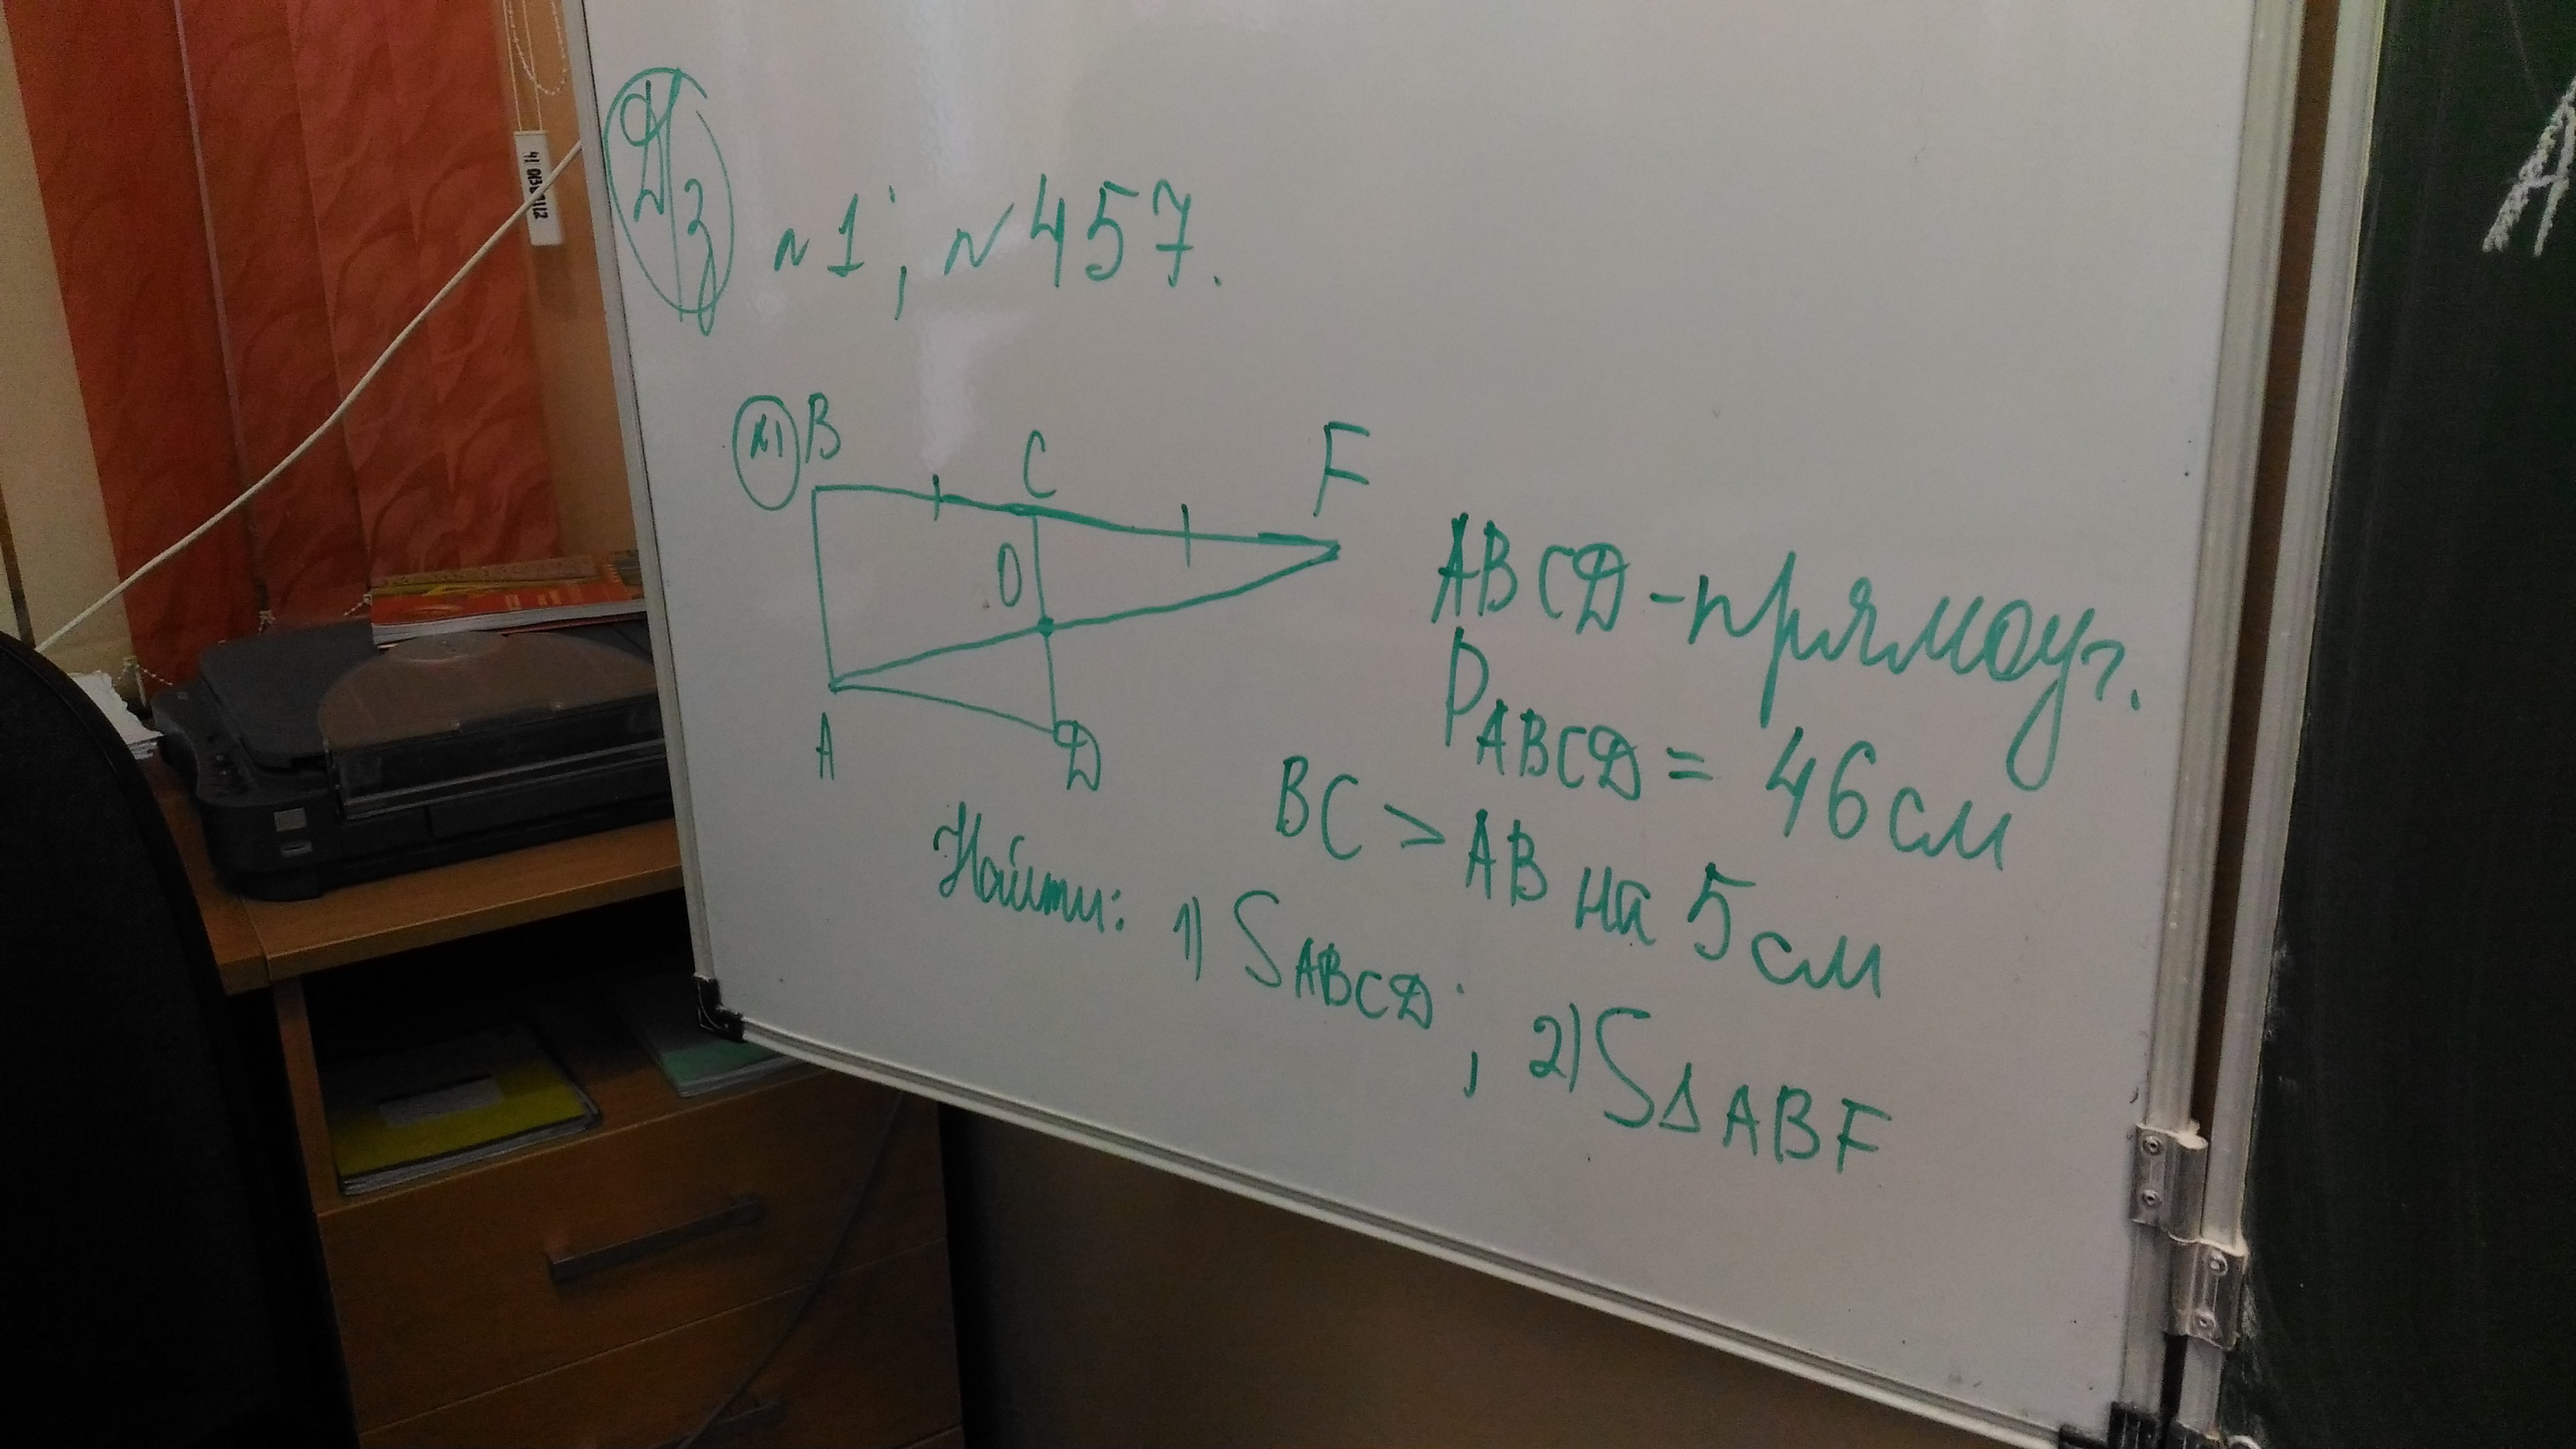 Д/з №1; №457.
№1
B
C
F
O
A
D
ABCD - прямоуг.
P ABCD = 46 см
BC > AB на 5 см
Найти: 1) S ABCD; 2) S∆ABF